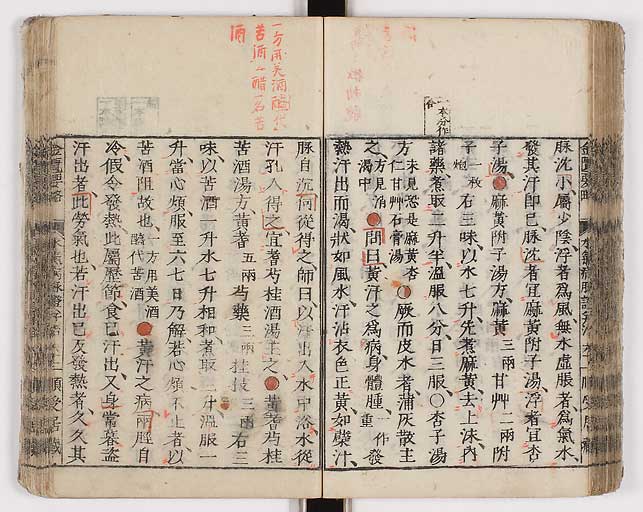 脉沈小屬少陰浮者為風無水虛脹者為氣水
發其汗即已脉沈者宜麻黃附子湯浮者宜杏
子湯麻黃附子湯方麻黃三兩甘艸二兩附
子一枚炮右三味以水七升先煮麻黃去上沫內
諸藥煮取二升半溫服八分日三服〇杏子湯
方未見恐是麻黃杏仁甘艸石膏湯〇厥而皮水者蒲灰散主
之方見消渴中問曰黃汗之為病身體腫一作重發
熱汗出而渴狀如風水汗沾衣色正黃如蘗汁
脉自沉何從得之師曰以汗出入水中浴水從
汗孔入得之宜耆芍桂酒湯主之黃耆芍桂
苦酒湯方黃耆五兩芍藥三兩桂枝三兩右三
味以苦酒一升水七升相和煮取三升溫服一
升當心煩服至六七日乃解若心煩不止者以
苦酒阻故也一方用美酒醯代苦酒黃汗之病兩脛自
冷假令發熱此屬歷節食已汗出又身常暮盜
汗出者此勞氣也若汗出已反發熱者久久其
一本分作合
一方用美酒醯代
苦酒
金匱要略
順受居藏